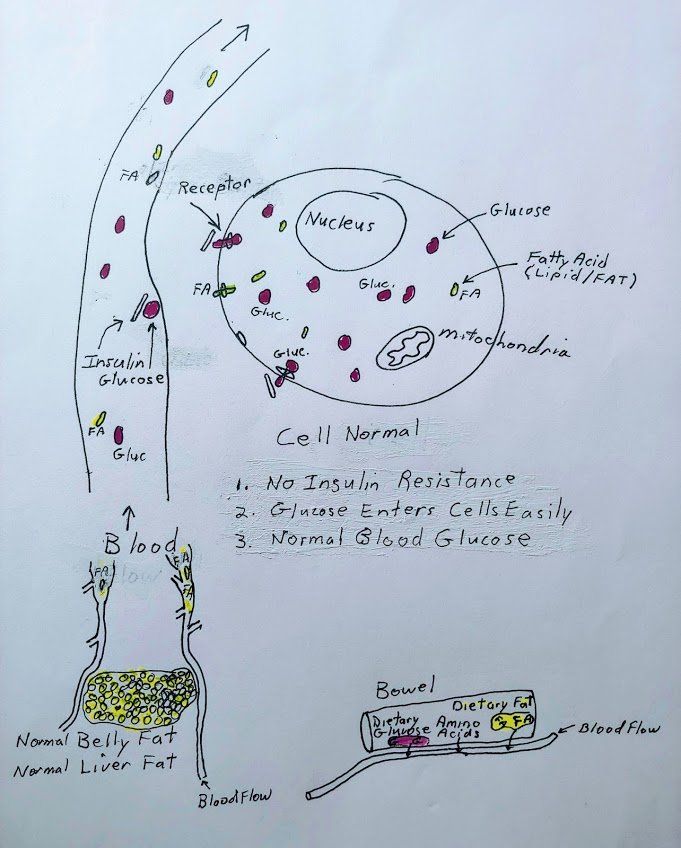 FA
Receptor
Nucleus
Glucose
Fatty Acid
(Lipid/FAT)
FA
Gluc.
FA
Gluc.
Gluc.
mitochondria
Insulin
Glucose
FA
Gluc
Cell Normal
1. No Insulin Resistance
2. Glucose Enters Cells Easily
3. Normal Blood Glucose
Blood
FA
FA
FA
Normal Belly Fat
Normal Liver Fat
Blood Flow
Bowel
Dietary Fat
Dietary
Glucose
Amino
Acids
FA
Blood Flow